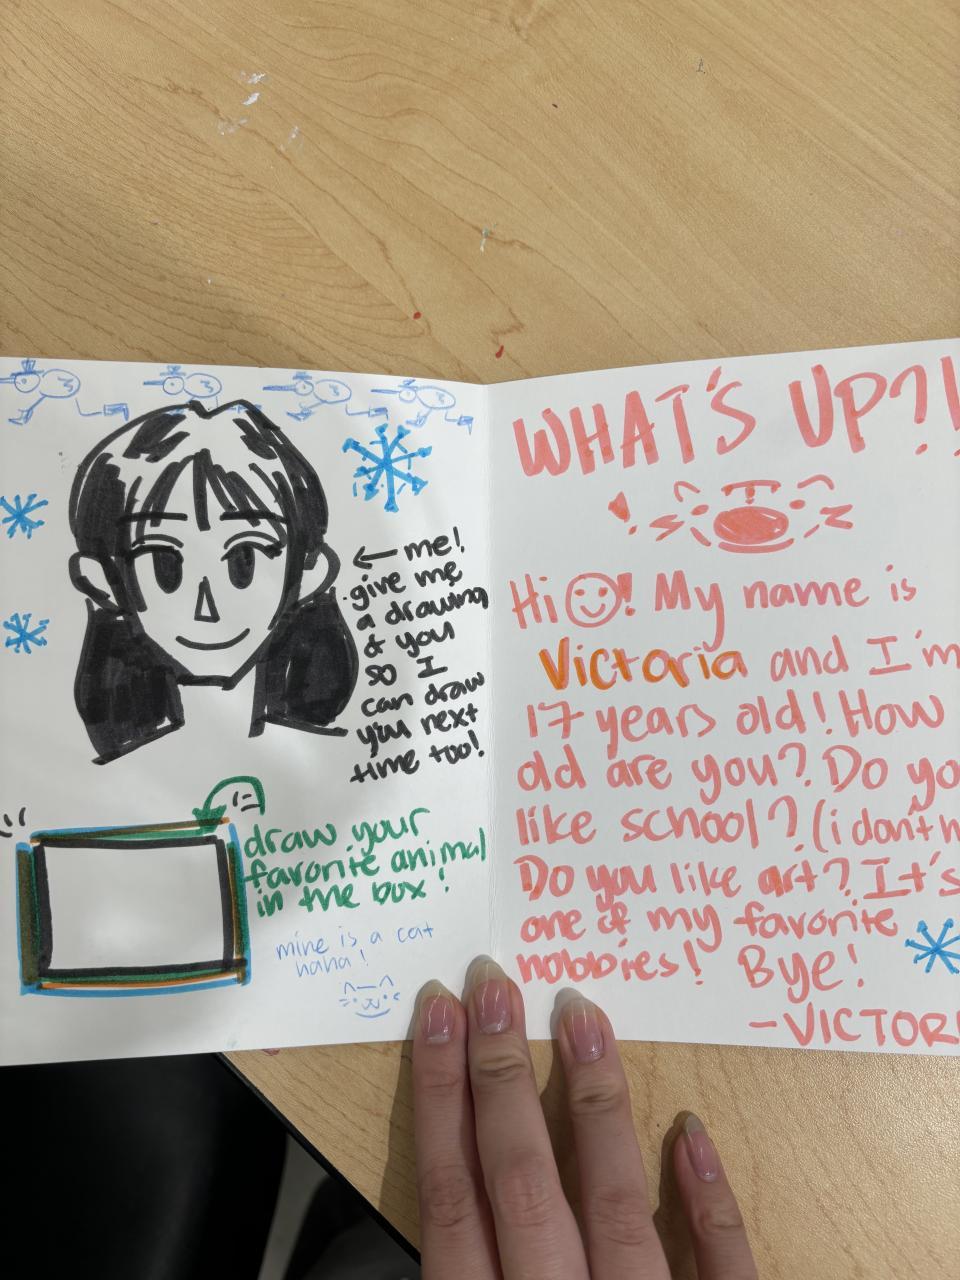 ← me!
give me
a drawing
of you
so I
can draw
you next
time too!
draw your
favorite animal
in the box!
mine is a cat
haha!
WHAT'S UP?!
Hi ! My name is
Victoria and I'm
17 years old! How
old are you? Do yo
like school? (i don't
Do you like art? It's
one of my favorite
hobbies! Bye!
-VICTORI